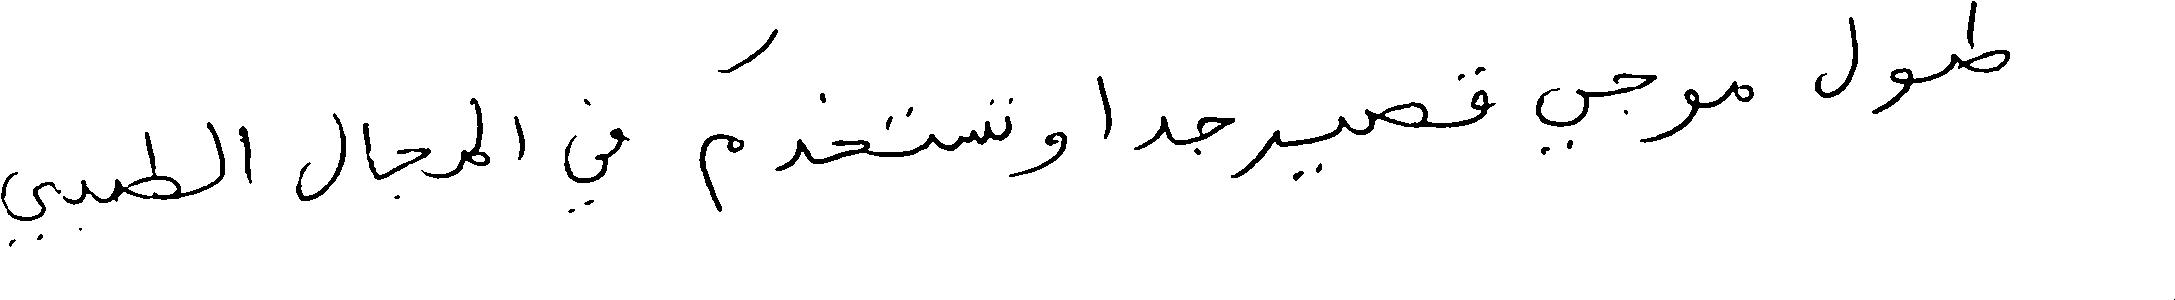 طول موجي قصير جدا وتستخدم في المجال الطبي